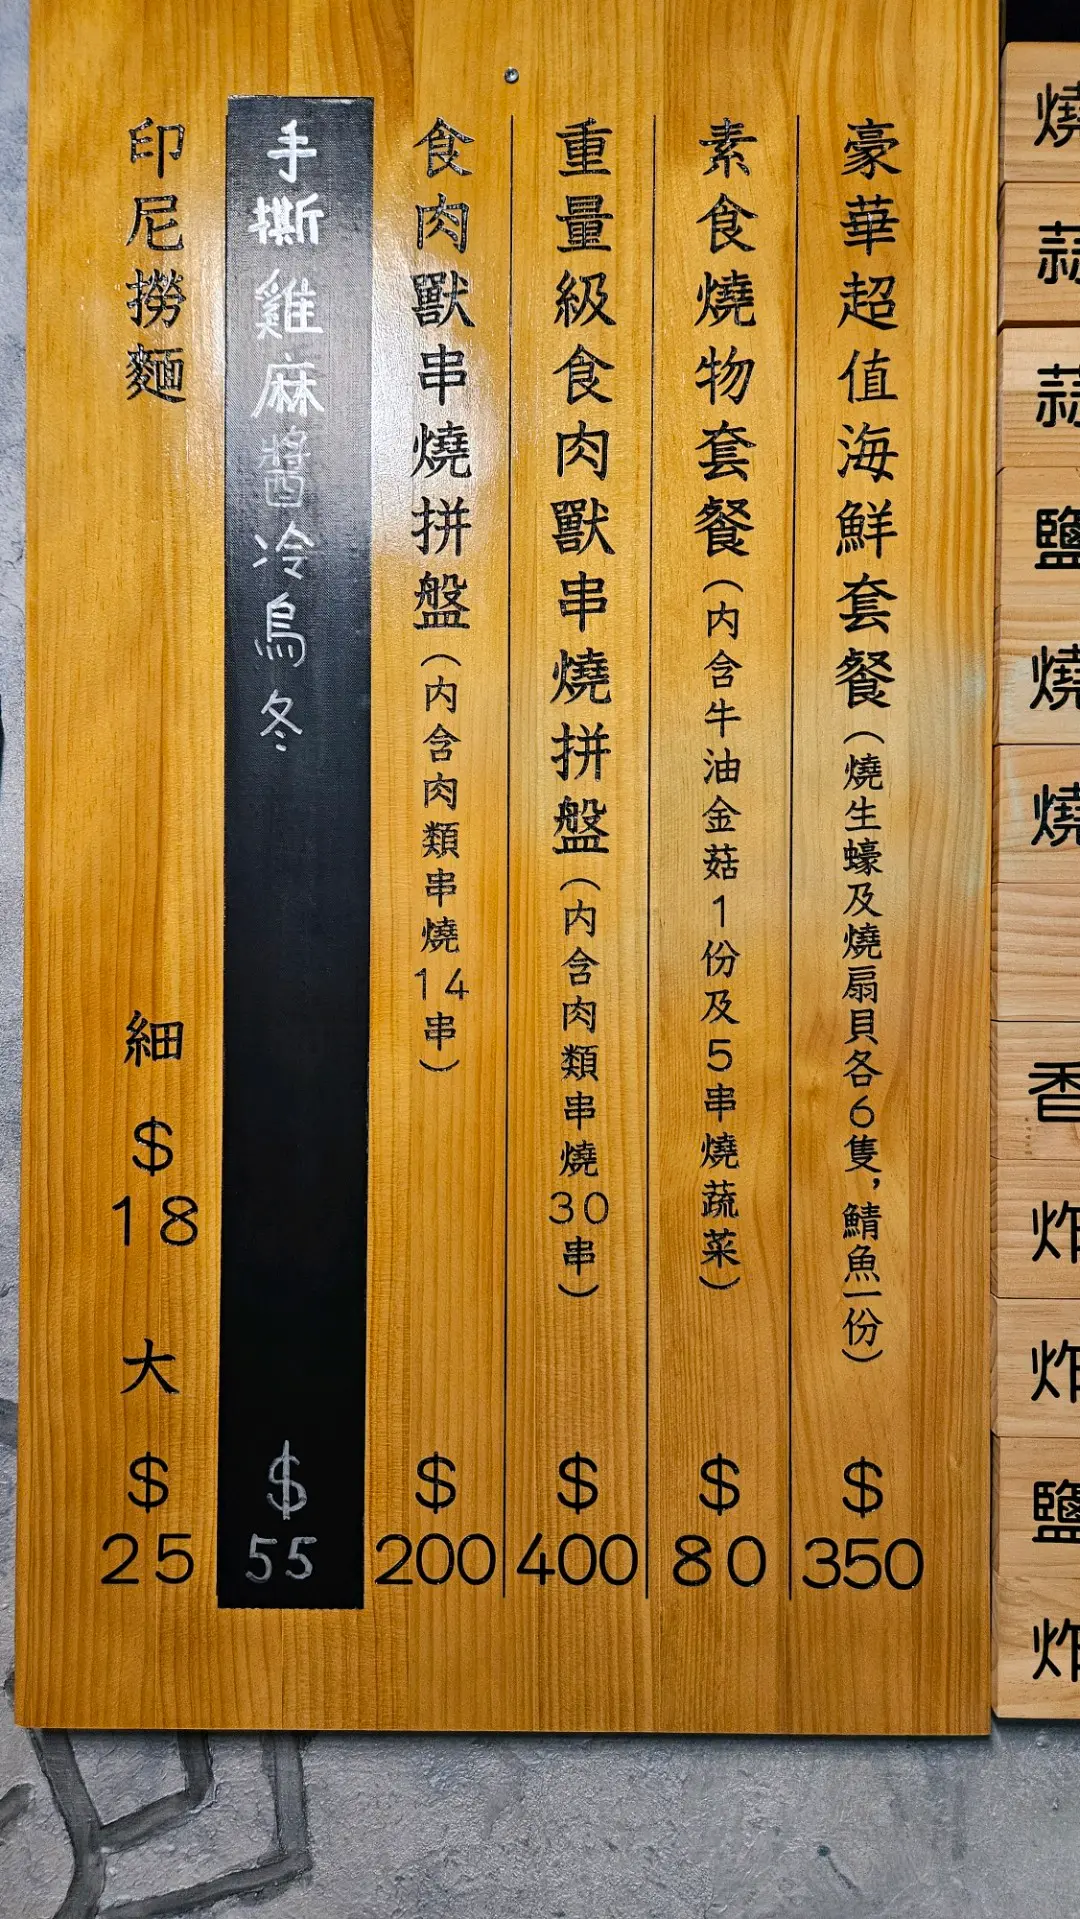 燒
蒜
蒜
鹽
燒
燒
香
炸
炸
鹽
炸
豪華超值海鮮套餐(燒生蠔及燒扇貝各6隻,鯖魚一份) $350
素食燒物套餐(内含牛油金菇1份及5串燒蔬菜) $80
重量級食肉獸串燒拼盤(内含肉類串燒30串) $400
食肉獸串燒拼盤(内含肉類串燒14串) $200
手撕雞麻醬冷烏冬 $55
印尼撈麵 細 $18 大 $25